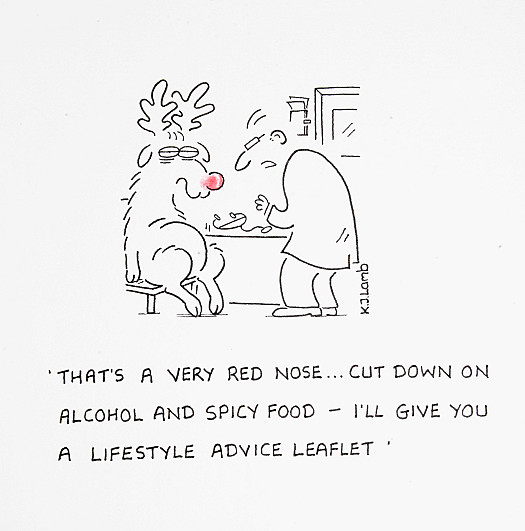 K.J.Lamb
'THAT'S A VERY RED NOSE... CUT DOWN ON
ALCOHOL AND SPICY FOOD – I'LL GIVE YOU
A LIFESTYLE ADVICE LEAFLET '